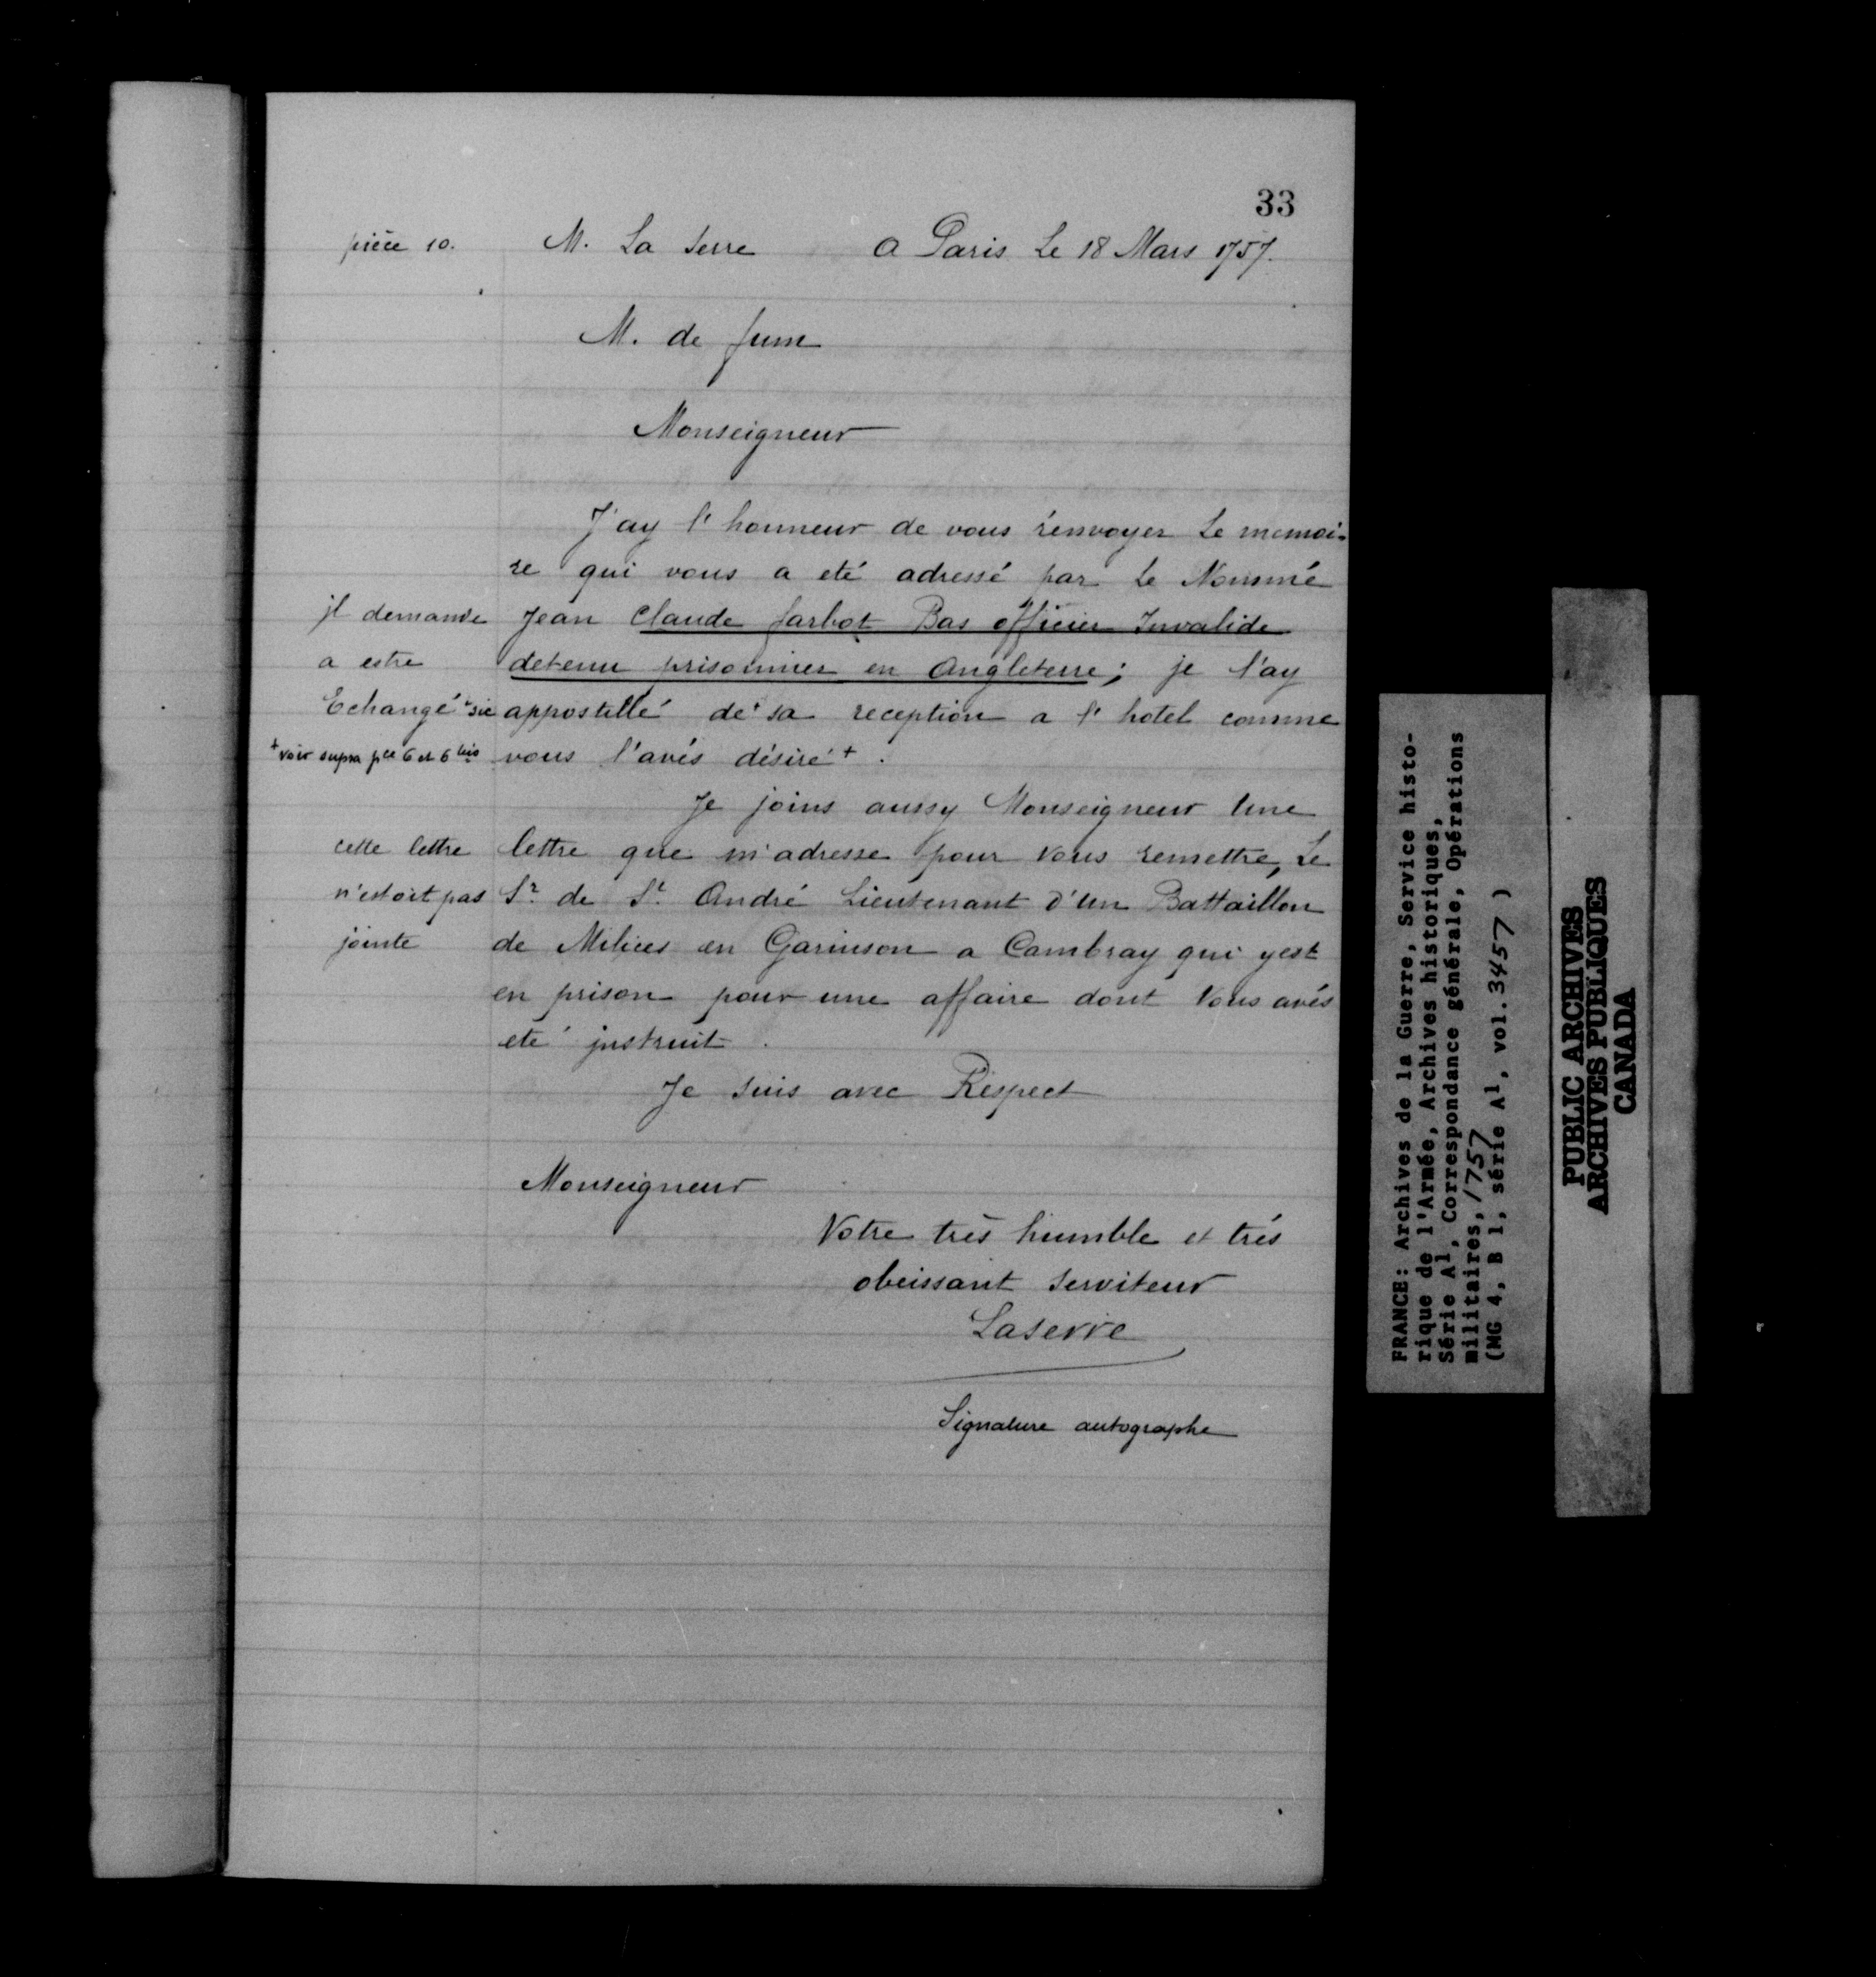 33
pièce 10. M. La Serre a Paris Le 18 Mars 1757.
M. de fum
Monseigneur
J'ay l'honneur de vous renvoyer Le memoi-
re qui vous a eté adressé par Le Nommé
jl demande Jean Claude Jarbot Bas officier Invalide
a estre detenu prisonnier en Angleterre; je l'ay
Echangé +sic appostillé de+ sa reception a l'hotel comme
+ voir supra pce 6 et 6 bis vous l'avés désiré+.
Je joins aussy Monseigneur Une
cette lettre lettre que m'adresse pour Vous remettre, Le
n'estoit pas Sr. de St. André Lieutenant d'Un Battaillon
jointe de Milices en Garnison a Cambray qui yest
en prison pour une affaire dont Vous avés
eté jnstruit.
Je suis avec Respect
Monseigneur
Votre très humble et très
obeissant Serviteur
Laserre
Signature autographe
FRANCE: Archives de la Guerre, Service histo-
rique de l'Armée, Archives historiques,
Série A1, Correspondance générale, Opérations
militaires, 1757
(MG 4, B 1, série A1, vol. 3457)
PUBLIC ARCHIVES
ARCHIVES PUBLIQUES
CANADA